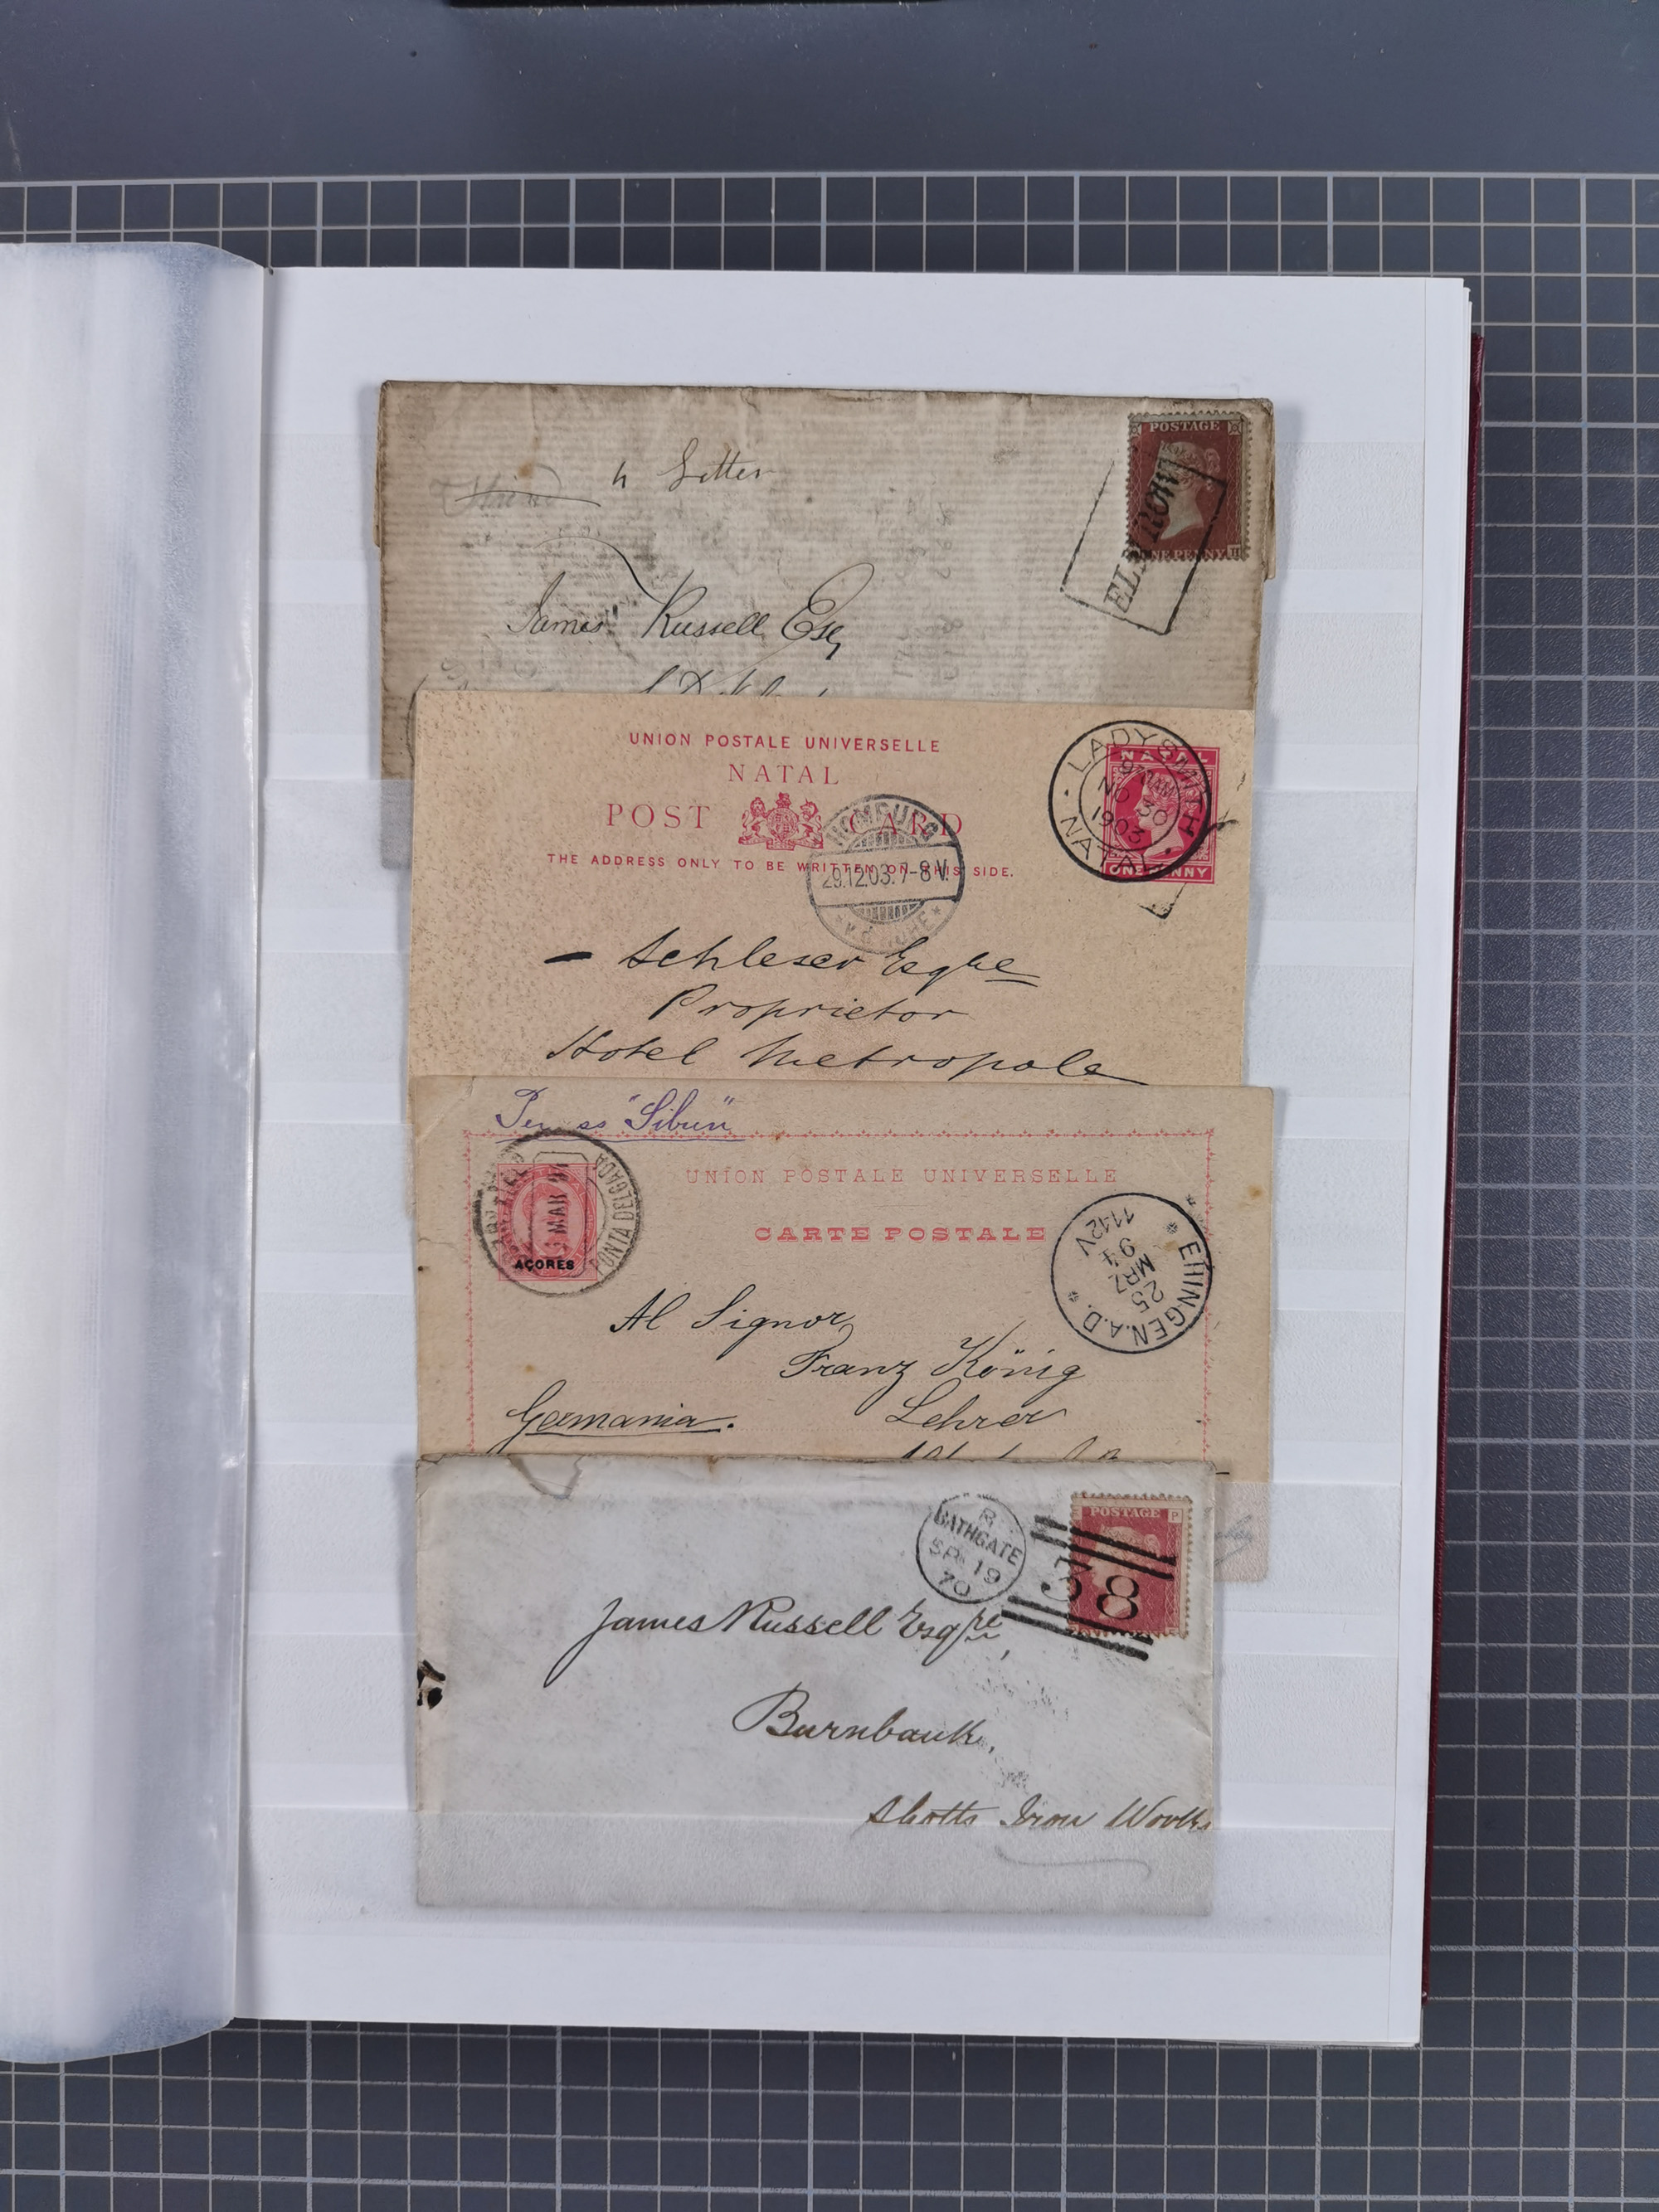 Letter
POSTAGE
ONE PENNY
James Russell Esq
UNION POSTALE UNIVERSELLE
NATAL
POST CARD
THE ADDRESS ONLY TO BE WRITTEN ON THIS SIDE.
LADYSMITH
NO 30
1903
NATAL
NATAL
ONE PENNY
HOMBURG
29.12.03. 7-8 V.
Schleser Esqre
Proprietor
Hotel Metropole
Per ss
UNION POSTALE UNIVERSELLE
CARTE POSTALE
MAR
PONTA DELGADA
AÇORES
EHINGEN A.D.
25
MRZ
94
11-12V
Al Signor
Franz König
Germania.
Lehrer
R
BATHGATE
SP 19
70
POSTAGE
P
8
James Russell Esqre,
Burnbank,
Shotts Iron Works